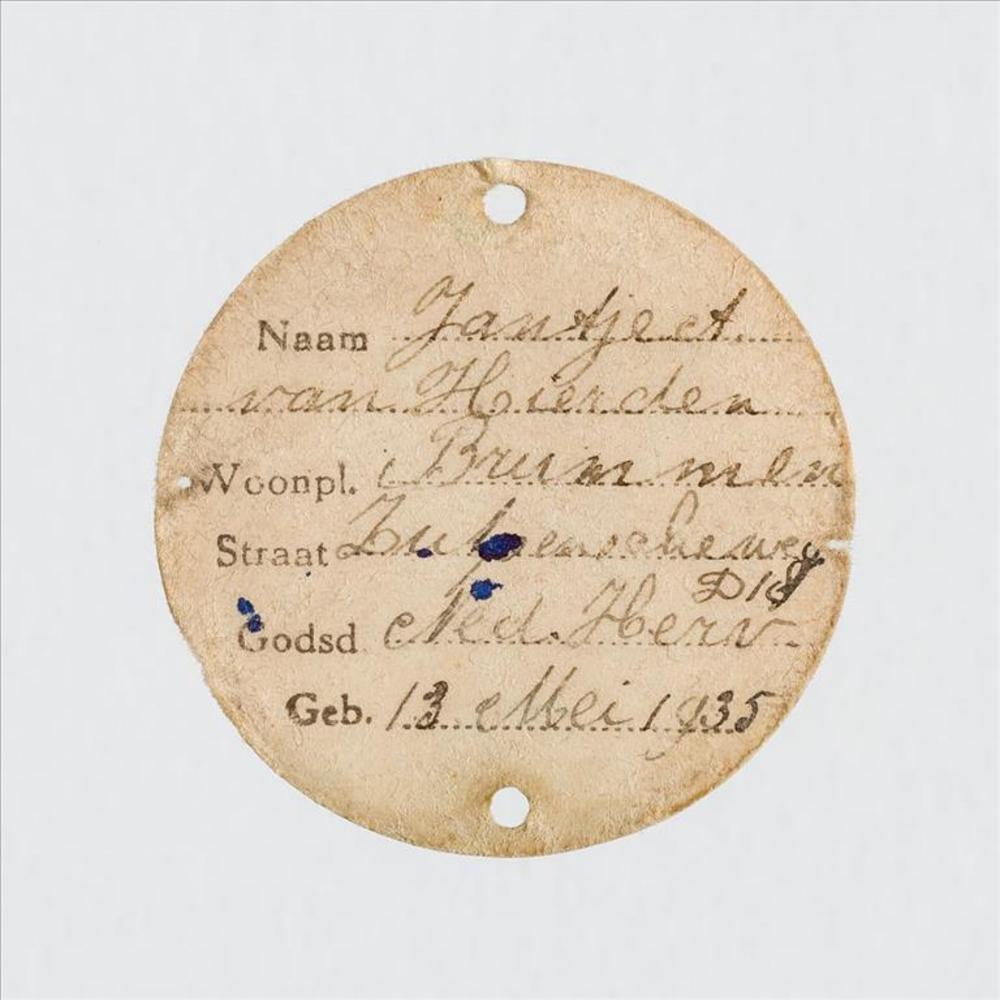 Naam Jantje ct
van Hierden
Woonpl. Brummen
Straat Zutpenscheweg
D18
Godsd Ned. Herv
Geb. 13 Mei 1935